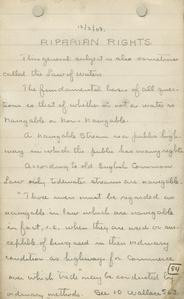 12/2/08.
RIPARIAN RIGHTS
This general subject is also sometimes
called the Law of Waters
The fundamental basis of all ques-
tions is that of whether or not a water is
Navigable or Non-Navigable.
A Navigable Stream is a public high-
way in which the public has many rights
According to old English Common
Law only tidewater streams are navigable.
"Those must be regarded as
navigable in law which are navigable
in fact, i.e. when they are used or sus-
ceptible of being used in their ordinary
condition as highways for Commerce
over which trade may be conducted by
ordinary methods. See 10 Wallace 563
54